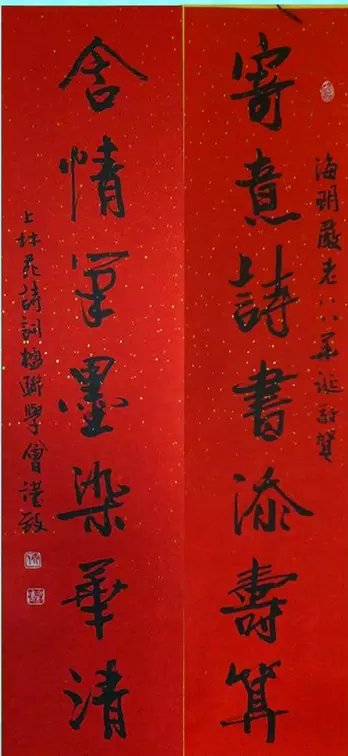 海明嚴老八八華誕敬賀
寄意詩書添壽算
含情筆墨染華清
上林苑詩詞楹聯學會謹致